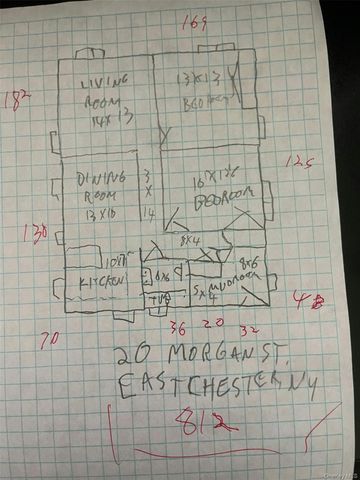 169
182
LIVING
ROOM
14X13
13X13
BEDROOM
125
DINING
ROOM
13X10
3
X
14
BEDROOM
130
8X4
KITCHEN
6X6
8X6
MUDROOM
5X4
TUB
70
36
20
32
20 MORGAN ST.
EASTCHESTER, NY
812